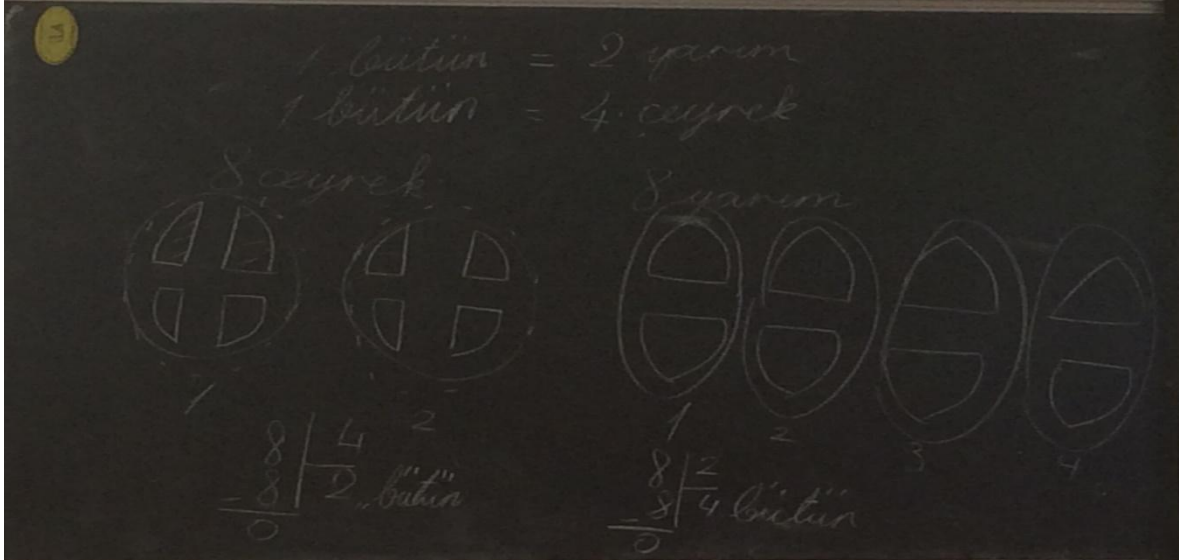 1 bütün = 2 yarım
1 bütün = 4 çeyrek
8 çeyrek
8 yarım
1 2
1 2 3 4
8 | 4
- 8 | 2 bütün
0
8 | 2
- 8 | 4 bütün
0